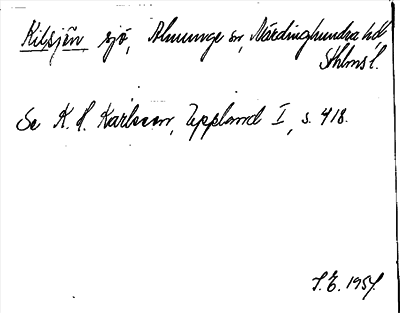 Kilsjön sjö, Almunge sn, Närdinghundra hd
Sthlms l.
Se K. H. Karlsson, Uppland I, s. 418.
S.E. 1957.